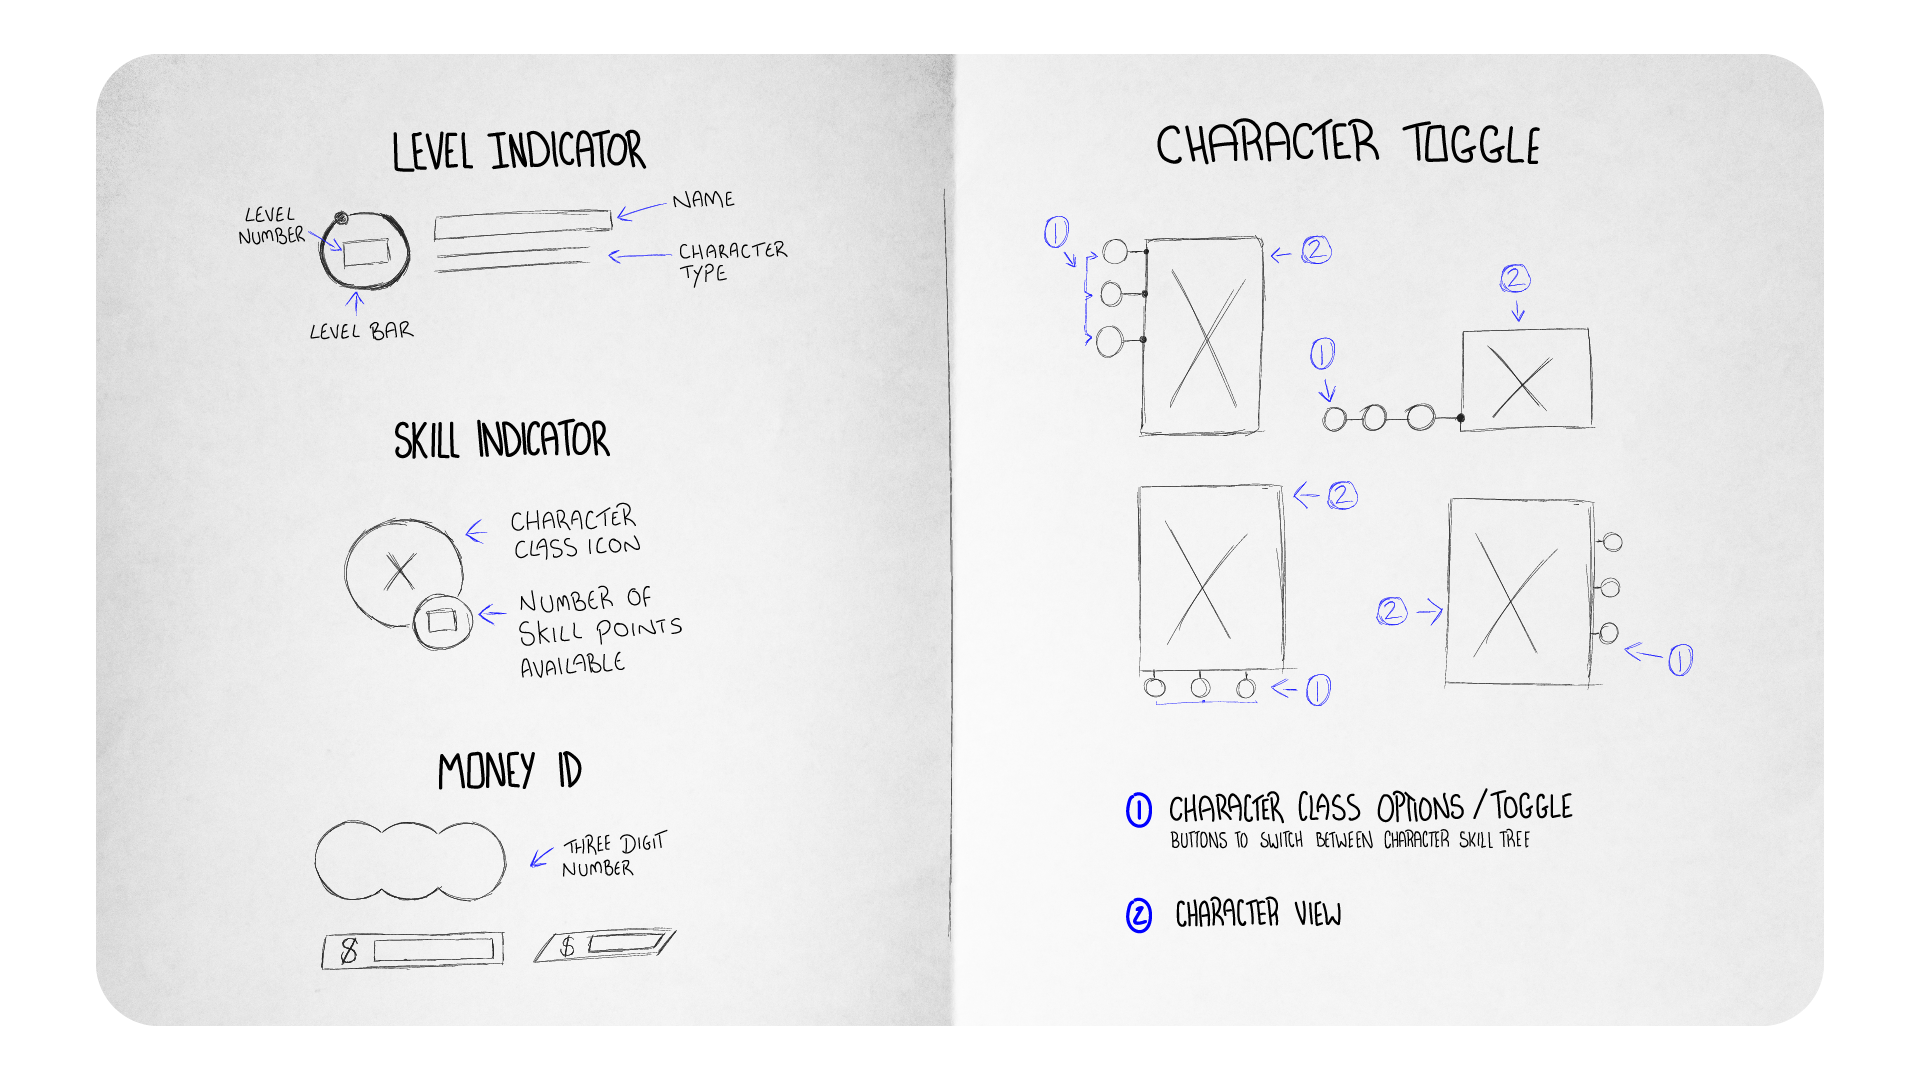 LEVEL INDICATOR
LEVEL
NUMBER
NAME
CHARACTER
TYPE
LEVEL BAR
SKILL INDICATOR
CHARACTER
CLASS ICON
NUMBER OF
SKILL POINTS
AVAILABLE
MONEY ID
THREE DIGIT
NUMBER
$
$
CHARACTER TOGGLE
1
2
2
1
2
2
1
1
1 CHARACTER CLASS OPTIONS / TOGGLE
BUTTONS TO SWITCH BETWEEN CHARACTER SKILL TREE
2 CHARACTER VIEW